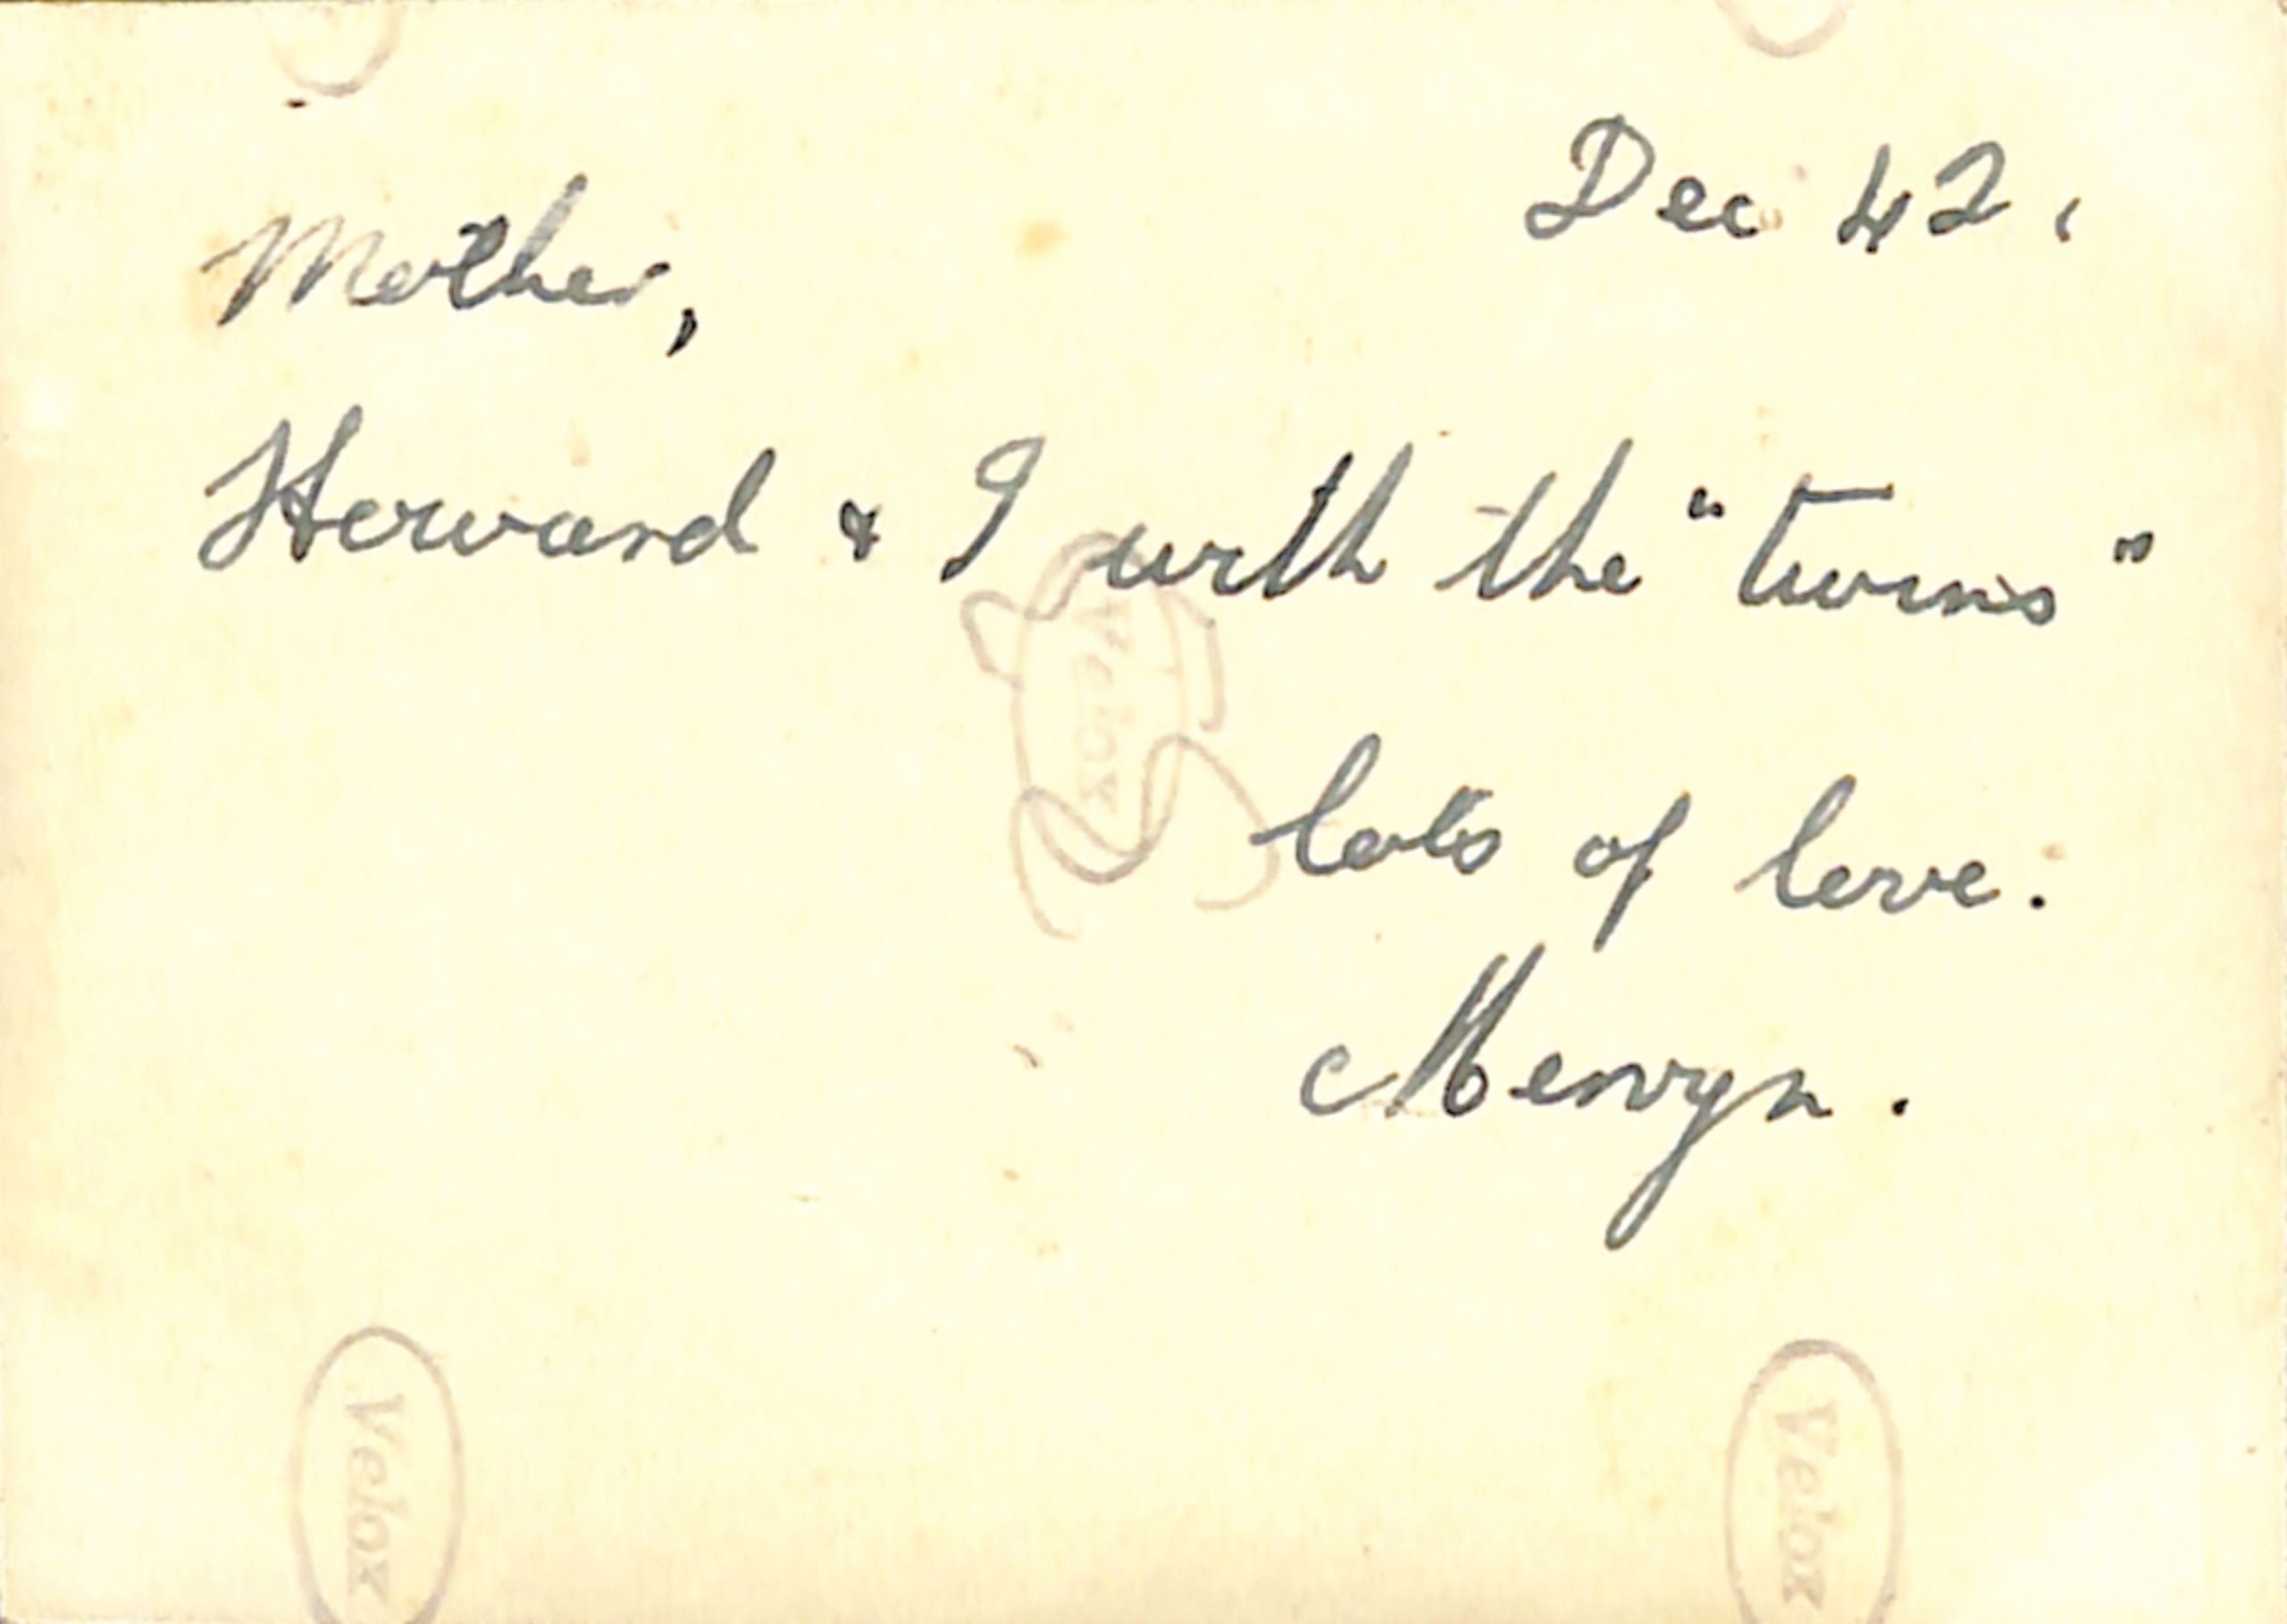 Dec 42.
Mother,
Howard & I with the "twins"
Velox
lots of love.
Mervyn.
Velox
Velox